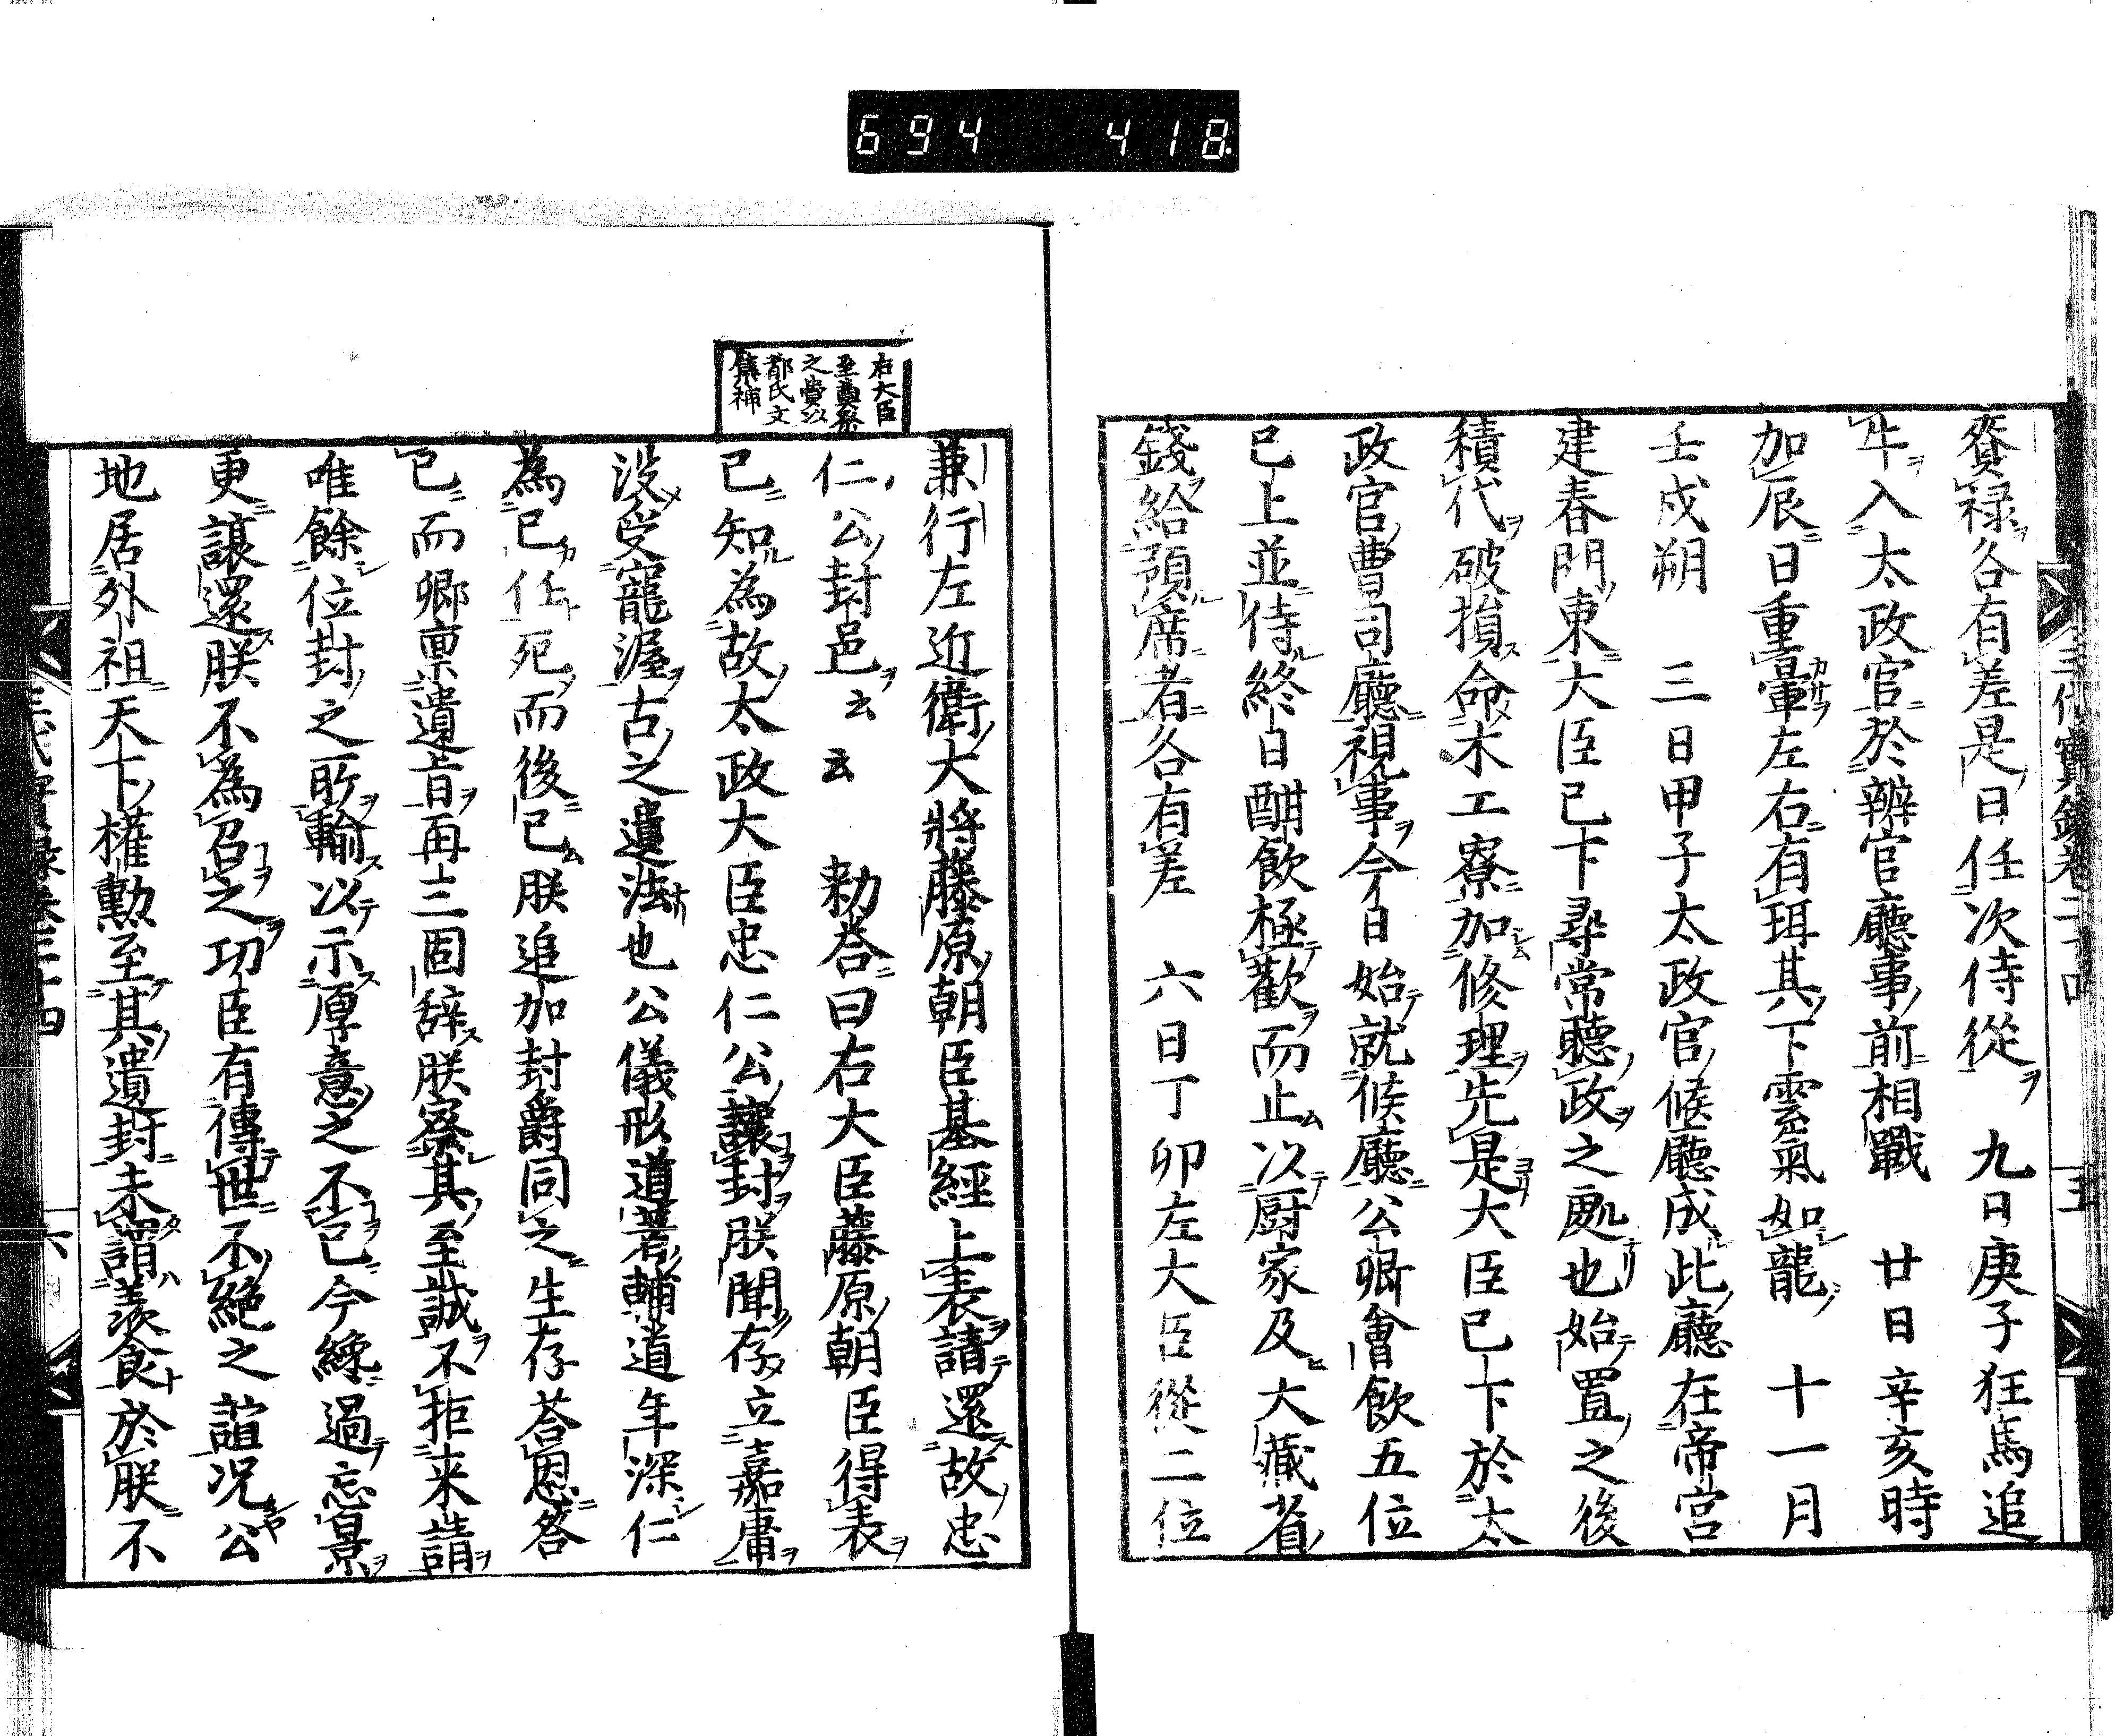 694 418
賚禄各有差是日任次侍從 九日庚子狂馬追
牛入太政官於辨官廳事前相戰 廿日辛亥時
加辰日重暈左右有珥其下雲氣如龍 十一月
壬戌朔 三日甲子太政官候廳成此廳在帝宮
建春門東大臣已下尋常聽政之處也始置之後
積代破損命木工寮加修理先是大臣已下於太
政官曹司廳視事今日始就候廳公卿會飲五位
已上並侍終日酣飲極歡而止以厨家及大藏省
錢給預席者各有差 六日丁卯左大臣從二位
右大臣
至奠祭
之費以
都氏文
集補
兼行左近衛大將藤原朝臣基經上表請還故忠
仁公封邑云云 勅荅曰右大臣藤原朝臣得表
已知為故太政大臣忠仁公讓封朕聞存立嘉庸
沒受寵渥古之遺法也公儀形道著輔道年深仁
為已任死而後已朕追加封爵同之生存荅恩答
已而卿稟遺旨再三固辞朕察其至誠不拒来請
唯餘位封之所輸以示厚意之不已今繰過忘景
更讓還朕不為召之功臣有傳世不絕之誼况公
地居外祖天下權勲至其遺封未謂羨食於朕不
三代實録卷二十四 六